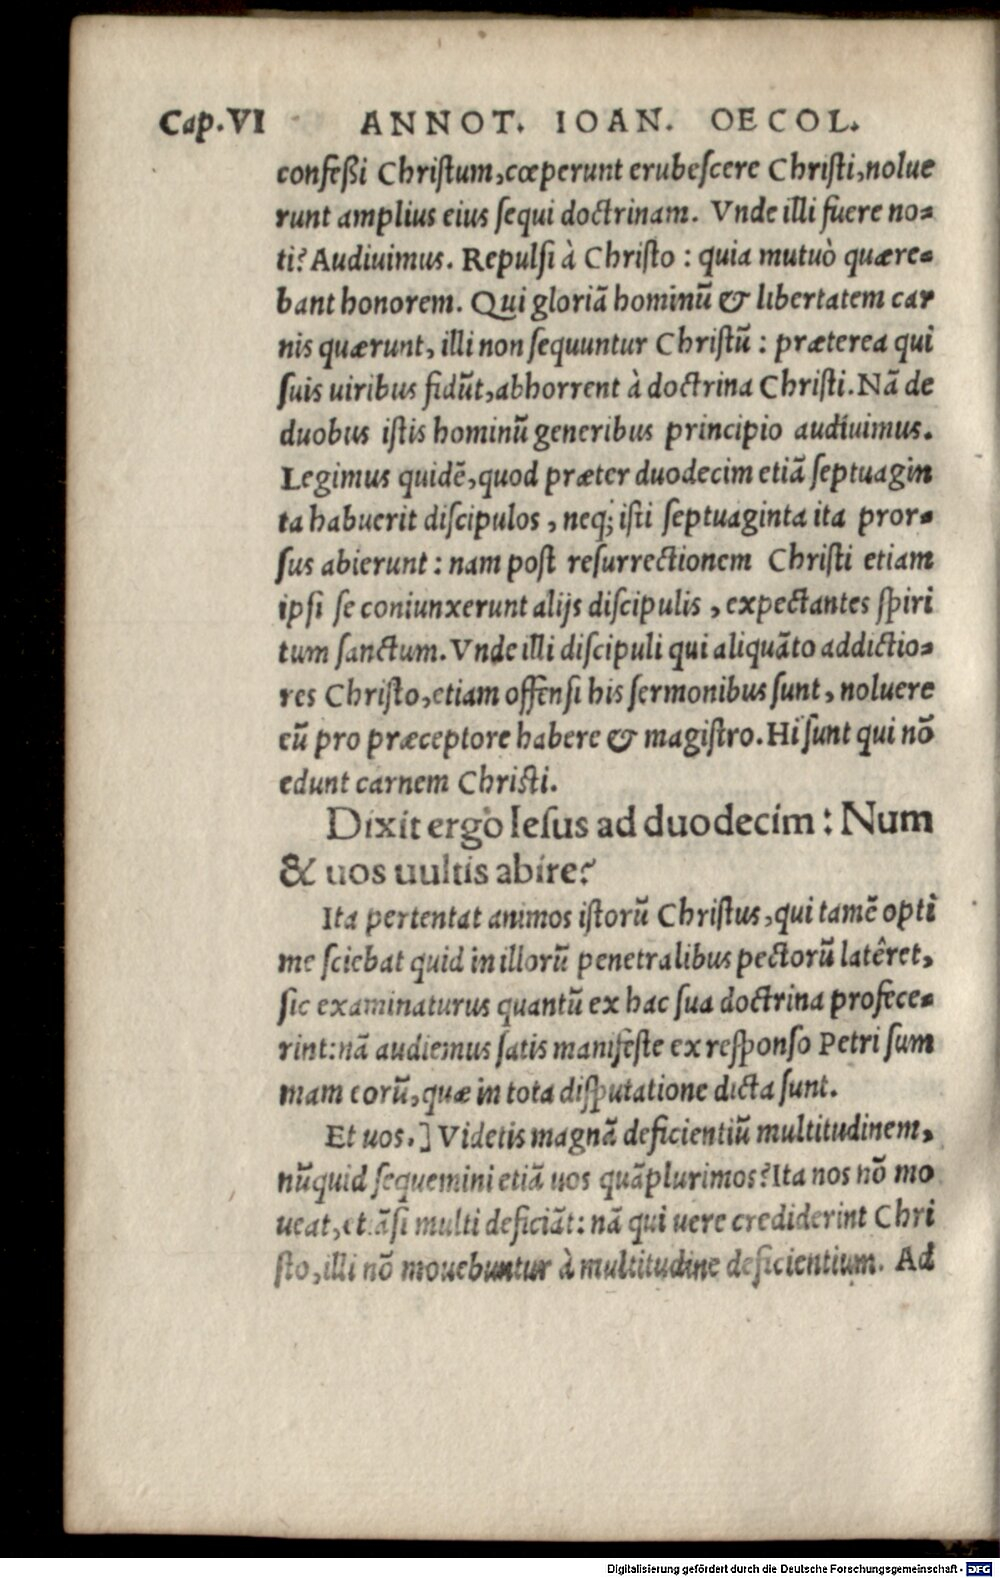 Cap.VI ANNOT. IOAN. OECOL.
confeßi Chriſtum,cœperunt erubeſcere Chriſti,nolue
runt amplius eius ſequi doctrinam. Vnde illi fuere no⸗
ti? Audiuimus. Repulſi à Chriſto : quia mutuò quære⸗
bant honorem. Qui gloriã hominũ & libertatem car
nis quærunt, illi non ſequuntur Chriſtũ : præterea qui
ſuis uiribus fidũt,abhorrent à doctrina Chriſti.Nã de
duobus iſtis hominũ generibus principio audiuimus.
Legimus quidẽ,quod præter duodecim etiã ſeptuagin
ta habuerit diſcipulos , neq; iſti ſeptuaginta ita pror⸗
ſus abierunt : nam poſt reſurrectionem Chriſti etiam
ipſi ſe coniunxerunt alijs diſcipulis , expectantes ſpiri
tum ſanctum. Vnde illi diſcipuli qui aliquãto addictio⸗
res Chriſto,etiam offenſi his ſermonibus ſunt, noluere
eũ pro præceptore habere & magiſtro. Hi ſunt qui nõ
edunt carnem Chriſti.
Dixit ergo Ieſus ad duodecim : Num
& uos uultis abire?
Ita pertentat animos iſtorũ Chriſtus,qui tamẽ opti
me ſciebat quid in illorũ penetralibus pectorũ latêret,
ſic examinaturus quantũ ex hac ſua doctrina profece⸗
rint:nã audiemus ſatis manifeſte ex reſponſo Petri ſum
mam eorũ,quæ in tota diſputatione dicta ſunt.
Et uos.] Videtis magnã deficientiũ multitudinem,
nũquid ſequemini etiã uos quãplurimos? Ita nos nõ mo
ueat, multi deficiãt: nã qui uere crediderint Chri
ſto,illi nõ mouebuntur à multitudine deficientium. Ad
Digitalisierung gefördert durch die Deutsche Forschungsgemeinschaft - DFG